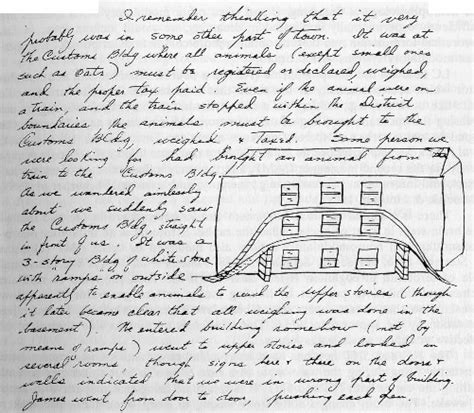 I remember thinking that it very
probably was in some other part of town. It was at
the Customs Bldg where all animals (except small ones
such as cats) must be registered or declared, weighed,
and the proper tax paid. Even if the animal were on
a train, and the train stopped within the District
boundaries the animals must be brought to the
Customs Bldg, weighed & Taxed. Some person we
were looking for had brought an animal from
train to the Customs Bldg.
As we wandered aimlessly
about we suddenly saw
the Customs Bldg, straight
in front of us. It was a
3-story Bldg of white stone
with ramps on outside
apparently to enable animals to reach the upper stories (though
it later became clear that all weighing was done in the
basement). We entered building somehow (not by
means of ramps) went to upper stories and looked in
several rooms, though signs here & there on the doors &
walls indicated that we were in wrong part of building.
James went from door to door, pushing each open.